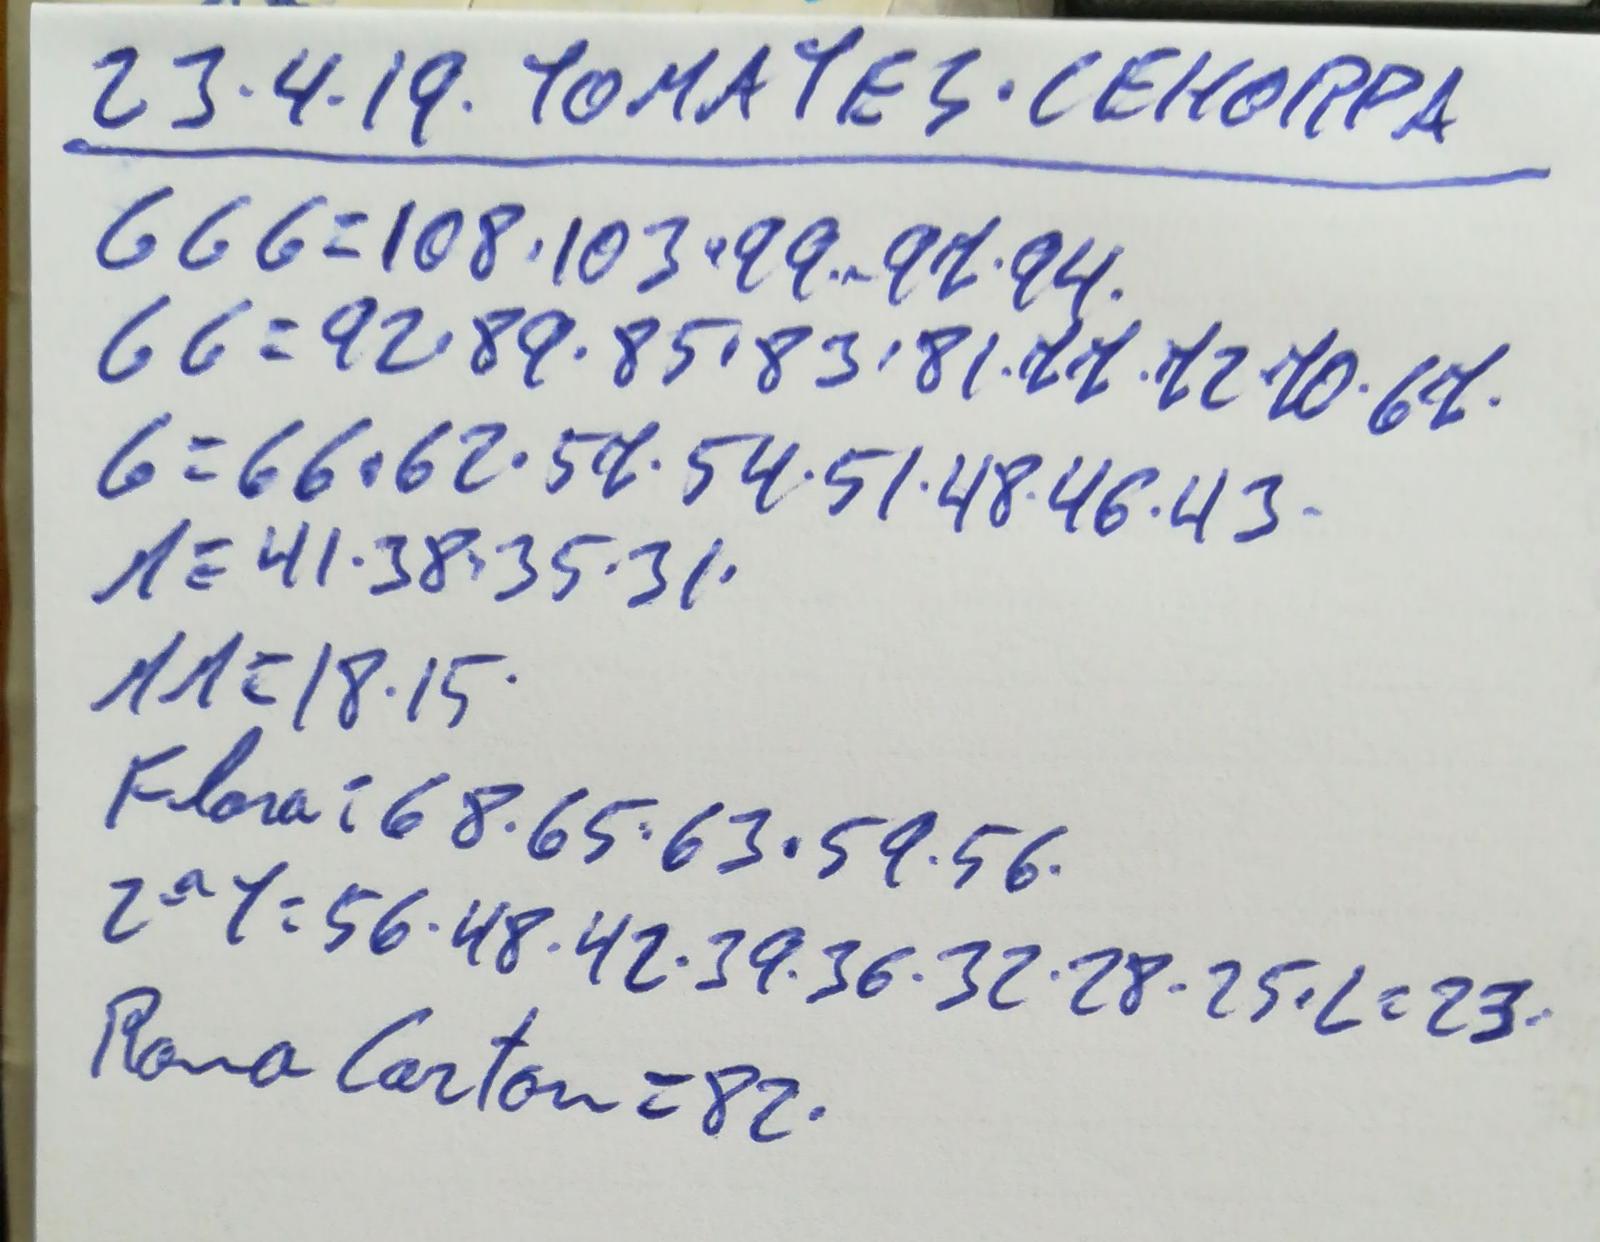 23.4.19. TOMATES. CEHORPA
GGG=108.103.99..97.94.
GG=92.89.85.83.81.77.72.70.67.
G=66.62.57.54.51.48.46.43.
M=41.38.35.31.
MM=18.15.
Flora=68.65.63.59.56.
2ªT=56.48.42.39.36.32.28.25.L=23.
Rama Carton=82.